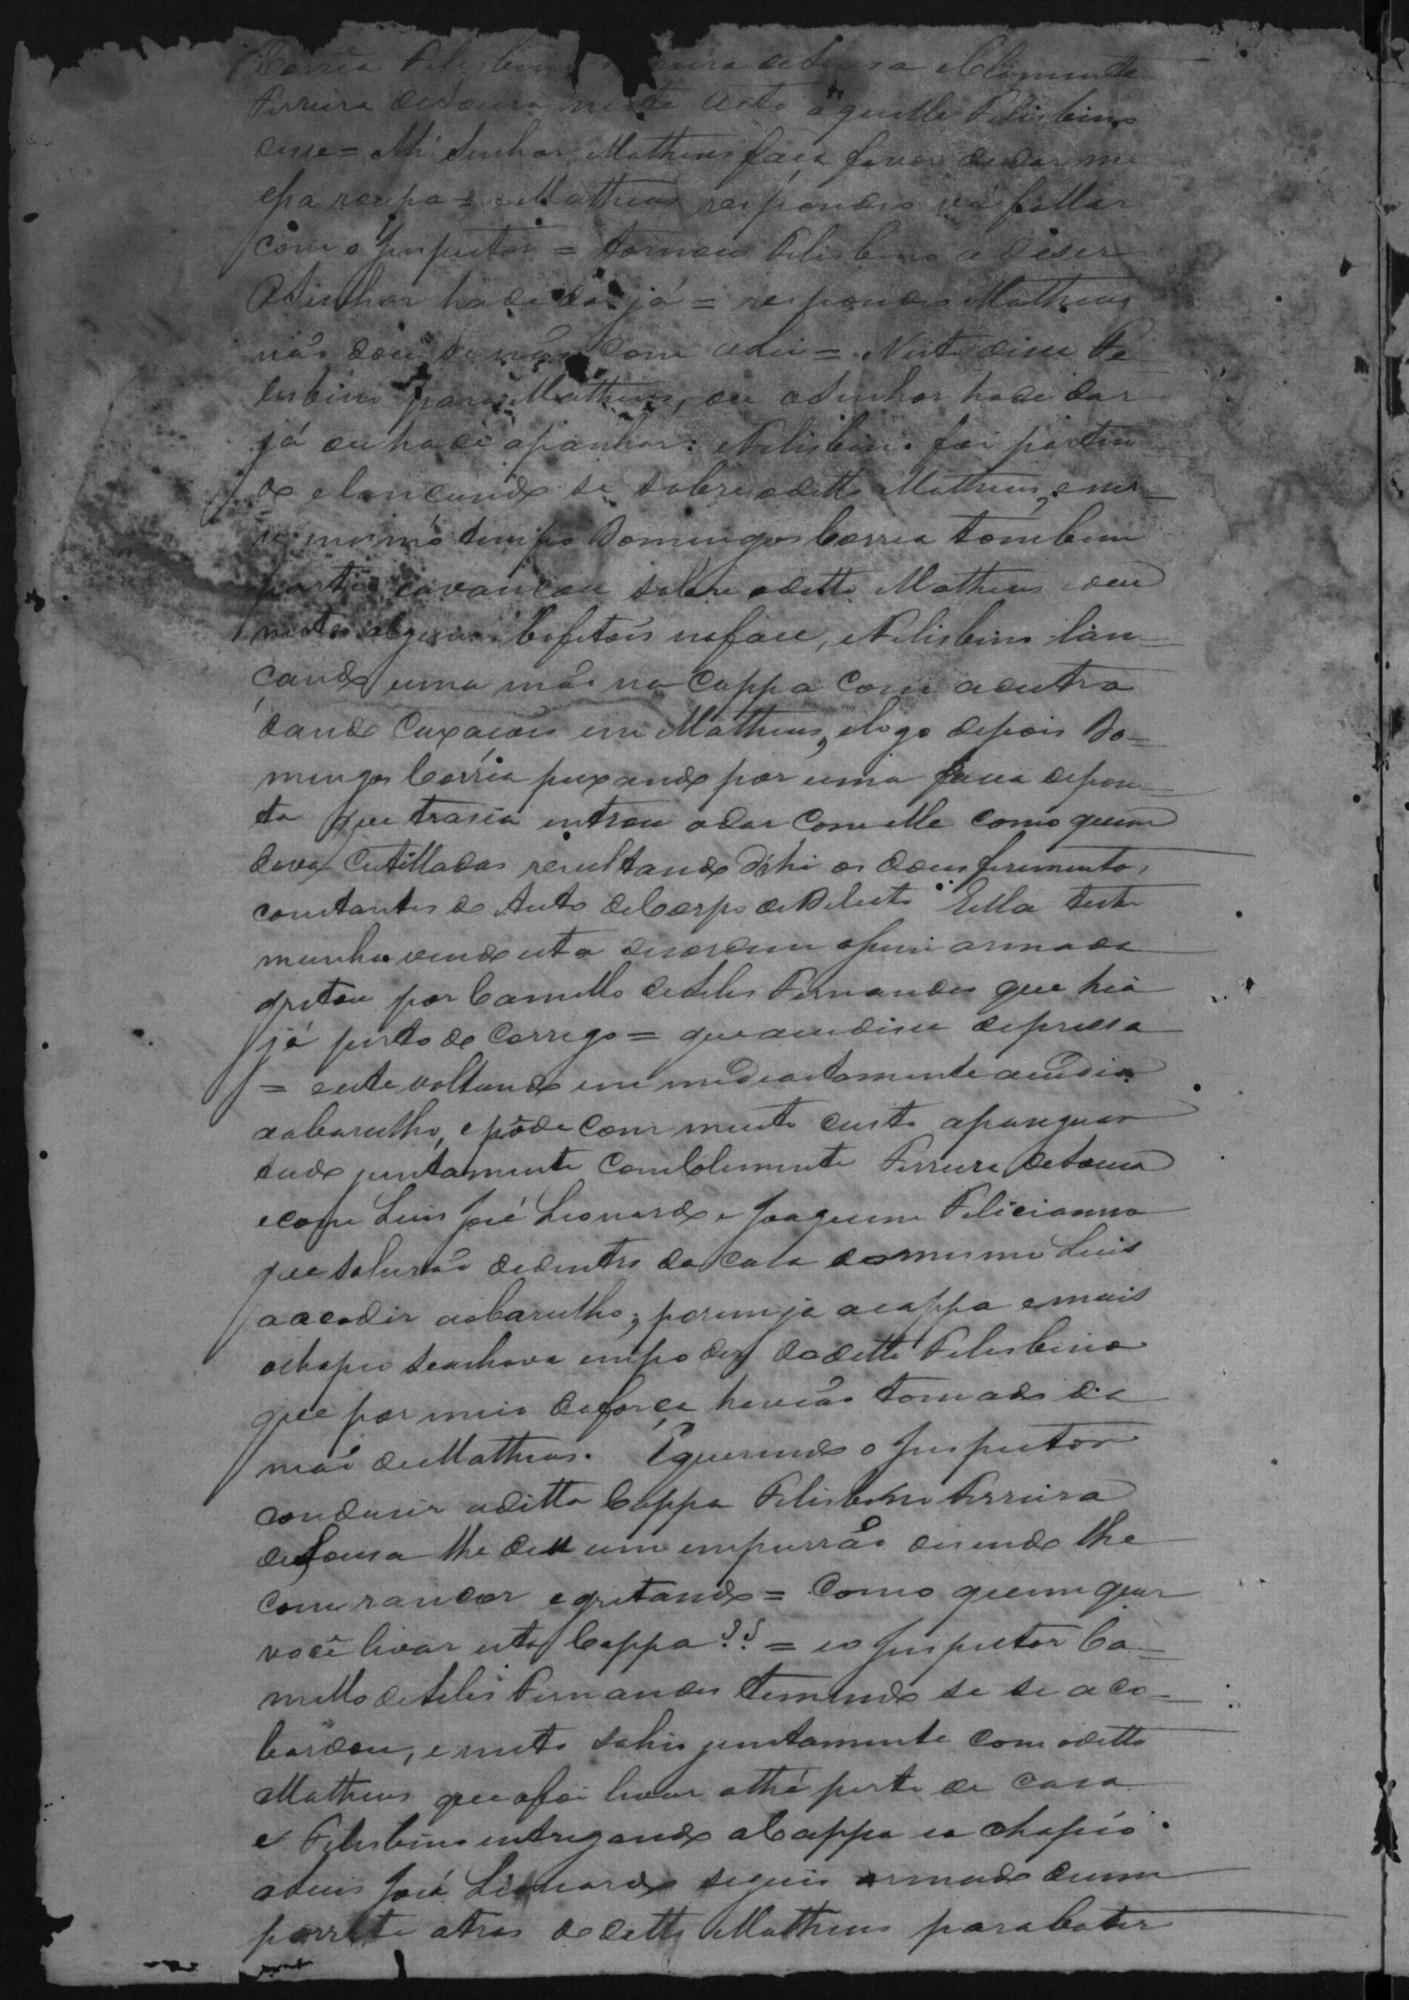 Corrêa Felisbino Ferreira de Sousa e Clemente
Ferreira de Sousa neste acto aquelle Felisbino
disse = Mé Senhor Matheus faça favor de dar me
essa roupa = e Matheus respondeo vá fallar
com o Inspector = tornou Felisbino a diser
O Senhor hade dar já = respondeo Matheus
não dou se não com = Nisto disse Fe-
lisbino para Matheus, ou o Senhor hade dar
já ou hade apanhar: e Felisbino foi partin-
do e lançando se sobre o ditto Matheus, e nes-
se mesmo tempo Domingos Corrêa tombem
partio e avançou sobre o ditto Matheus deu
neste alguns bofetois na face, e Felisbino lan-
çando uma mão na Cappa com a outra
dando Caxaçois em Matheus, e logo depois Do-
mingos Corrêa puxando por uma faca de pon-
ta que trasia entrou a dar com elle como quem
dava Cutilladas resultando d'ahi os dous ferimentos
constantes do Auto de Corpo de Delicto. Ella teste
munha vendo esta desordem assim armada
gritou por Camillo de Teles Fernandes que hia
já perto do Corrego = que acudisse depressa
= e este voltando immediactamente acudio
ao barulho, e pôde com muito custo apasiguar
tudo juntamente com Clemente Ferreira de Sousa
e com Luis José Leonardo e Joaquim Felicianno
que sahirão de dentro da casa do mesmo Luis
a acodir ao barulho, porem já a cappa e mais
o chapeo se achava em poder do ditto Felisbino
que por meio da força haviao tomado da
mão de Matheus. E querendo o Inspector
condusir a ditta Cappa Felisbino Ferreira
de Sousa lhe deu um empurrão disendo lhe
com rancor e gritando = Como quem quer
você livar esta Cappa?? = e o Inspector Ca-
millo de Teles Fernandes temendo se se aco-
bardou, e nisto sahio juntamente com o ditto
Matheus que o foi livar athé perto de casa
e Felisbino entregando a Cappa e o chapéo
a Luis José Leonardo seguio armado de um
porrete atras do ditto Matheus para bater